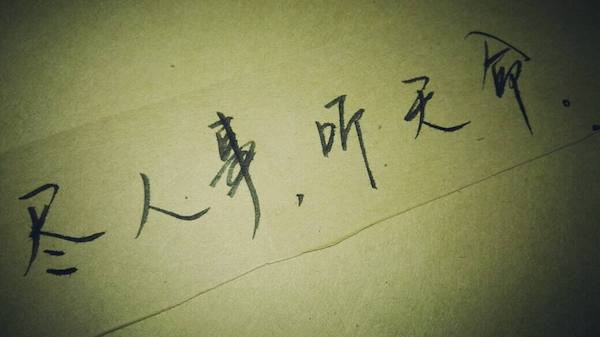 尽人事,听天命.